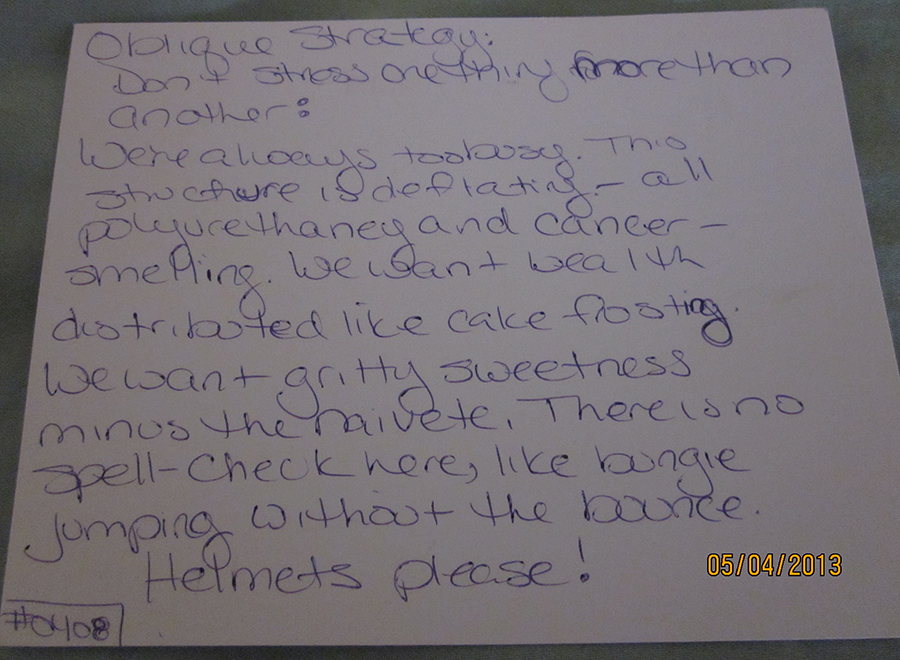 Oblique Strategy:
Don't stress one thing more than
another:
We're always too busy. This
structure is deflating - all
polyurethaney and cancer -
smelling. We want wealth
distributed like cake frosting.
We want gritty sweetness
minus the naivete. There is no
spell-check here, like bungie
jumping without the bounce.
Helmets please!
05/04/2013
#0408